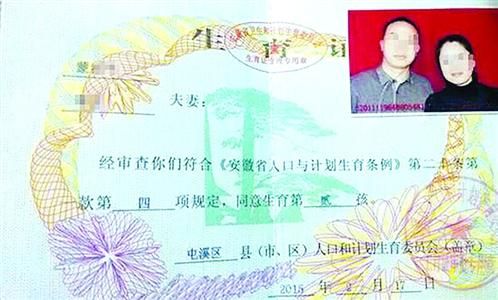 生育证
生育证明专用章
夫妻:
经审查你们符合《安徽省人口与计划生育条例》第二十条第
款第 四 项规定,同意生育第 贰 孩。
屯溪区 县(市、区)人口和计划生育委员会(盖章)
2015 年 2 月 17 日